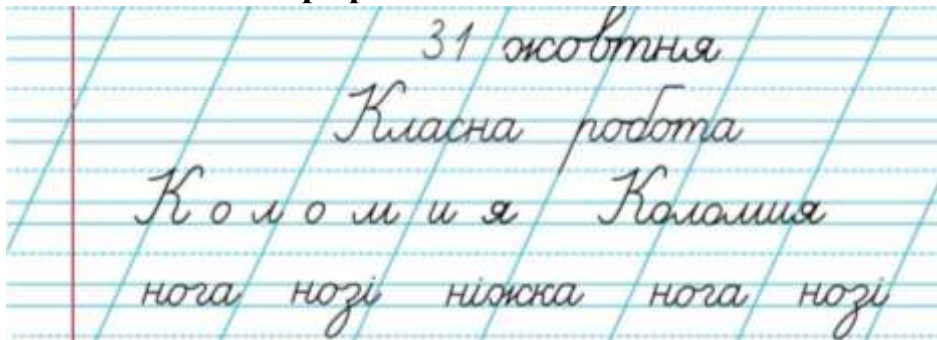 31 жовтня
Класна робота
К о л о м и я Коломия
нога нозі ніжка нога нозі